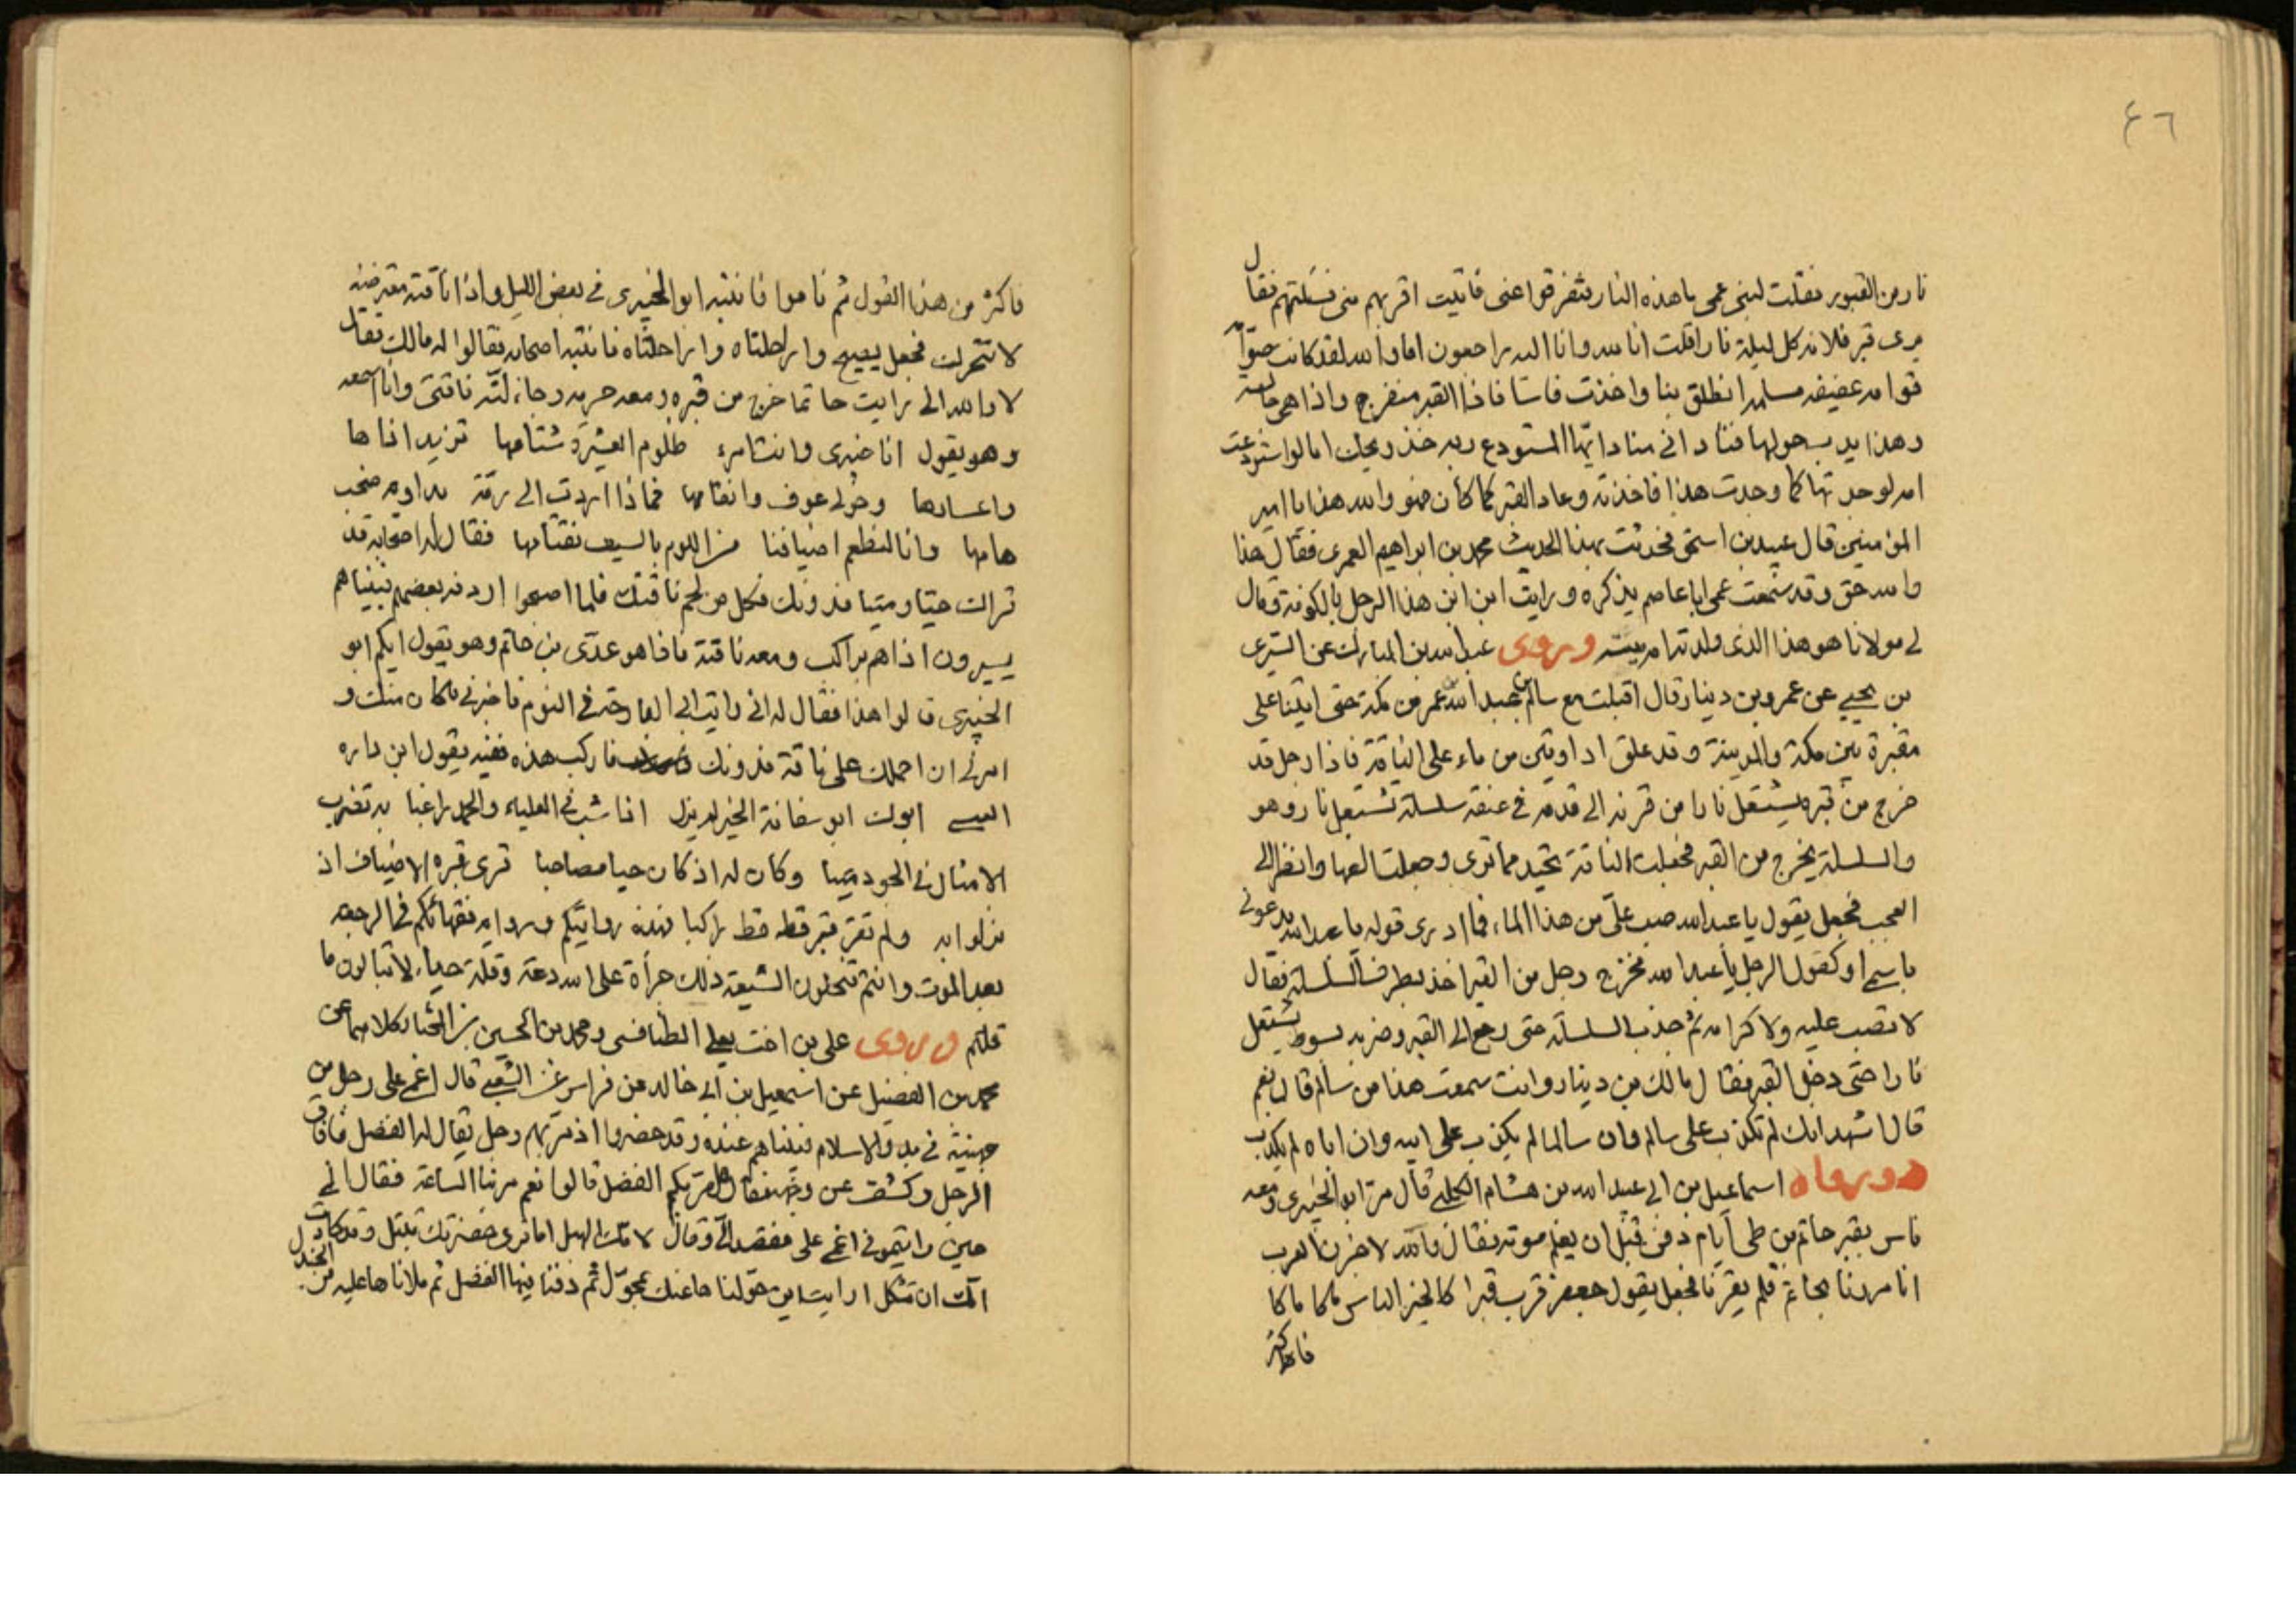 ٤٦
نار من القبور فقلت لبنى عمى ما هذه النار فتفرقوا عنى فاتيت اقربهم منى فسئلتهم فقال
يرى قبر فلانه كل ليلة نارا قلت انا لله وانا اليه راجعون اما والله لقد كانت صوّامة
قوامه عفيفه مسلمه انطلق بنا واخذت فاسا فاذا القبر منفرج واذا هى جالسه
وهذا يدب حولها فنادانى مناد ايّها المستودع ربه خذ وديعتك اما لو استودعت
امه لوجدتها كما وجدت هذا فاخذته وعاد القبر كما كان فهو والله هذا يا امير
المؤمنين قال عبيد بن اسحق فحدثت بهذا الحديث محمد بن ابراهيم العمرى فقال هذا
والله حق وقد سمعت عمى ابا عاصم يذكره ورايت ابن ابن هذا الرجل بالكوفة وقال
لى مولانا هو هذا الذى ولدته امه ميتة وروى عبد الله بن المبارك عن السرى
بن يحيى عن عمرو بن دينار قال اقبلت مع سالم بن عبد الله عمر من مكة حتى اتينا على
مقبرة بين مكة والمدينة وقد علق اداوتين من ماء على الناقة فاذا رجل قد
خرج من قبره يشتعل نارا من قرنه الى قدمه فى عنقه سلسلة تشتعل نار وهو
والسلسلة يخرج من القبر فجعلت الناقة تحيد مما ترى وجعلت الفها وانظر الى
العجب فجعل يقول يا عبد الله صب علىّ من هذا الماء فما ادرى قوله يا عبد الله يدعونى
باسمى او كقول الرجل يا عبد الله فخرج رجل من القبر اخذ بطرف السلسلة فقال
لا تصب عليه ولا كرامه ثم جذب السلسلة حتى رجع الى القبر وضربه بسوط يشتعل
نارا حتى دخل القبر فقال مالك بن دينار وانت سمعت هذا من سالم قال نعم
قال اشهد انك لم تكذب على سالم وان سالما لم يكذب على ابيه وان اباه لم يكذب
وروا اسماعيل بن ابى عبد الله بن هشام الكلبى قال مرّ ابو الخيبرى ومعه
ناس بقبر حاتم من طى ايام دفن قبل ان يعلم موته فقال والله لاخبرن العرب
انا مررنا بحاتم فلم يقرنا فجعل يقول جعفر قرب قبرا كالخبز الناس
فاكثر
فاكثر من هذا القول ثم ناموا فانتبه ابو الخيبرى فى بعض الليل واذا ناقته معترضة
لا تتحرك فجعل يصيح وا راحلتاه وا راحلتاه فانتبه اصحابه فقالوا له مالك فقال
لا والله الى رايت حاتما خرج من قبره ومعه حربه وجاء لبّة ناقتى وانا اسمعه
وهو يقول انا خيبرى وانت امرء ظلوم العشيرة شتامها تريد اذاها
واعسارها وحولى عوف وانعامها فماذا اردت الى رمّة بداويه صخب
هامها وانا لنطعم اضيافنا من الكوم بالسيف نعتامها فقال له اصحابه قد
قراك حيّا وميتا فدونك فكل من لحم ناقتك فلما اصبحوا اردفه بعضهم فبيناهم
يسيرون اذا هم براكب ومعه ناقة فاذا هو عدّى بن حاتم وهو يقول ايكم ابو
الخيبرى قالوا هذا فقال له انى رايت ابى البارحة فى النوم فاخبرنى بمكان منك و
امرنى ان احملك على ناقة فدونك فاركب هذه ففيه يقول ابن داره
العبسى ابوك ابو سفانة الخير لم يزل اذا شب فى العلياء والحمد راغبا به تضرب
الامثال فى الجود ميتا وكان له اذ كان حيا مصاحبا قرى قبره الاضياف اذ
نزلوا به ولم تقر قبر قبله قط راكبا فهذه روايتكم ورواية فقهائكم فى الرجعه
بعد الموت وانتم تنحلون الشيعة ذلك جرأة على الله دعة وقلة حياء لا تبالون ما
قلتم وروى على بن اخت يعلى الطنافسى ومحمد بن الحسين بن المختار كلاهما عن
محمد بن الفضيل عن اسمعيل بن ابى خالد عن فراس عن الشعبى قال اغمى على رجل من
جهينة فى بدو الاسلام فبيناهم عنده وقد حضروا اذ مرّ بهم رجل يقال له الفضل فافاق
الرجل وكشف عن وجهه فقال هل مرّ بكم الفضل قالوا نعم مر بنا الساعة فقال انى
حين رايتمونى اغمى على فقصد الىّ وقال لامك الهبل اما ترى حفرتك تنبثل وقد كادت
امّك ان تثكل ارايت ان حوّلناها عنك بمحوّل ثم دفنا فيها الفضل ثم ملاناها عليه من الجندل